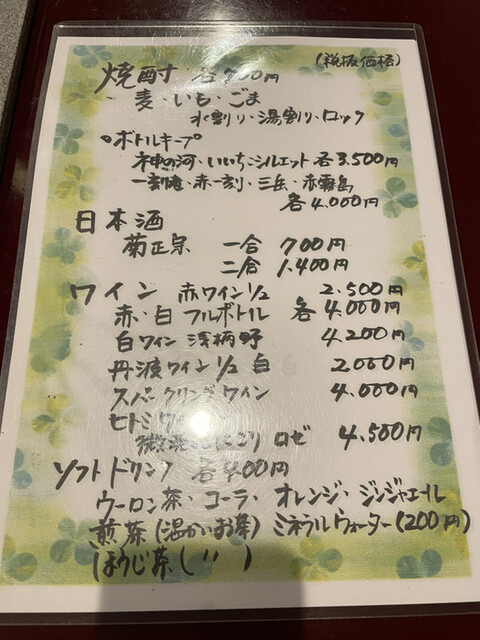 (税抜価格)
焼酎・各700円
麦・いも・ごま
水割り・湯割り・ロック
°ボトルキープ
神の河・いいちこシルエット 各3.500円
一刻者・赤一刻・三岳・赤霧島
各4.000円
日本酒
菊正宗 一合 700円
二合 1.400円
ワイン 赤ワイン1/2 2.500円
赤・白 フルボトル 各4.000円
白ワイン 浅柄野 4.200円
丹波ワイン1/2 白 2.000円
スパークリングワイン 4.000円
ヒトミワ
にごり ロゼ 4.500円
ソフトドリンク 各400円
ウーロン茶・コーラ・オレンジ・ジンジャエール
煎茶(温かいお茶) ミネラルウォーター(200円)
ほうじ茶( 〃 )